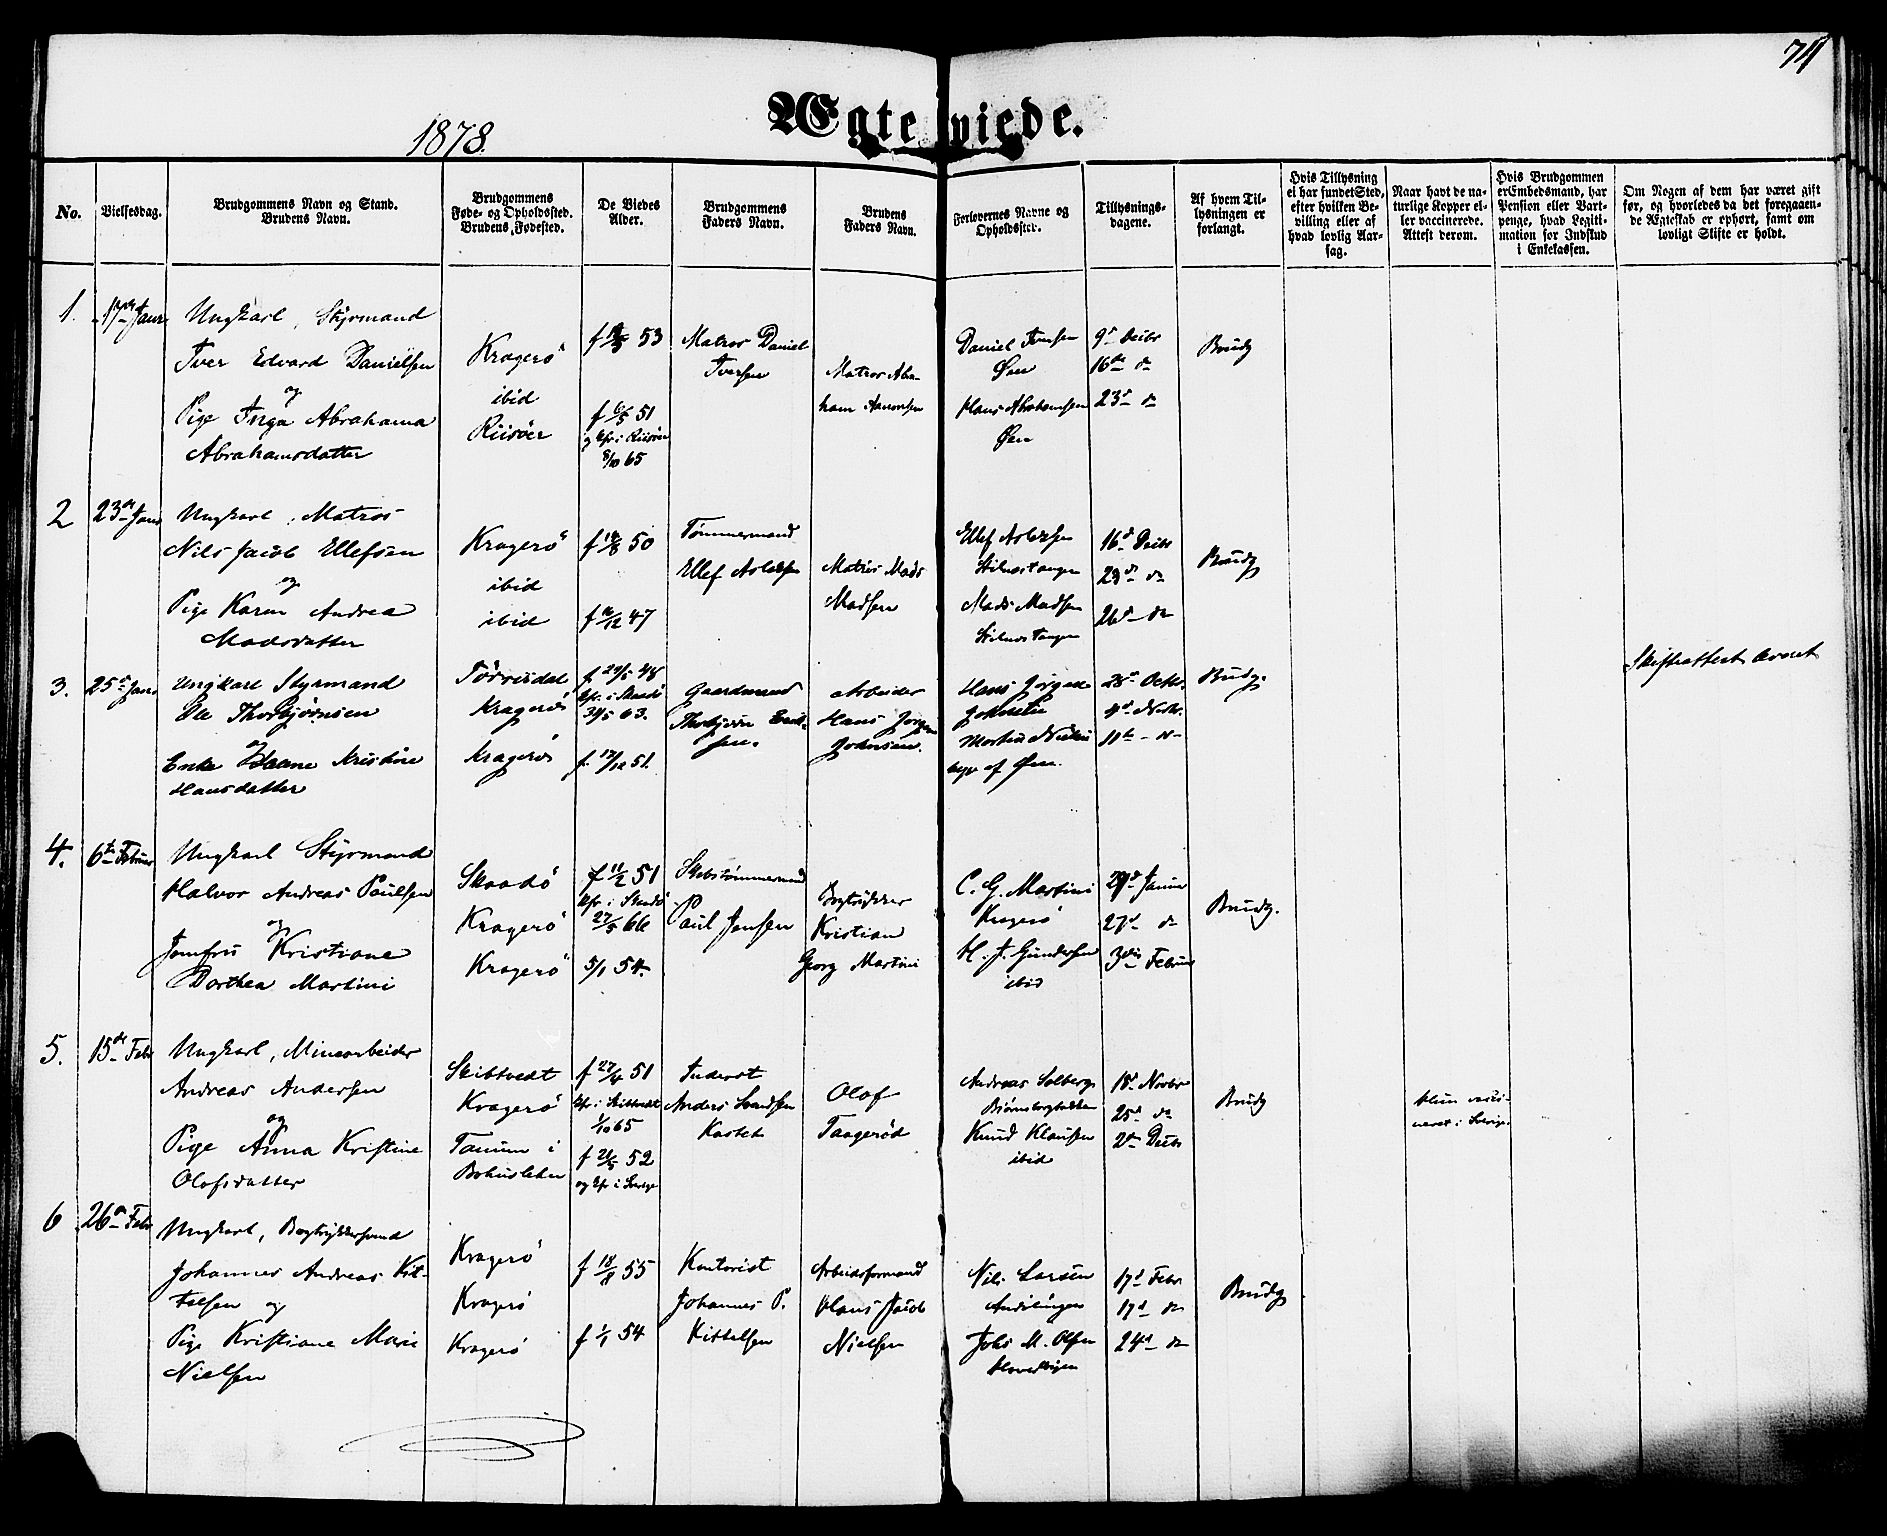 71
Ægteviede.
1878.
No.
Vielsesdag.
Brudgommens Navn og Stand.
Brudens Navn.
Brudgommens
Føde- og Opholdssted.
Brudens Fødested.
De Viedes
Alder.
Brudgommens
Faders Navn.
Brudens
Faders Navn.
Forlovernes Navne og
Opholdssted.
Tillysnings-
dagene.
Af hvem Til-
lysningen er
forlangt.
Hvis Tillysning
ei har fundet Sted,
efter hvilken Be-
villing eller af
hvad lovlig Aar-
sag.
Naar havt de na-
turlige Kopper el-
ler vaccinerede.
Attest derom.
Hvis Brudgommen
er Embedsmand, har
Pension eller Vart-
penge, hvad Legiti-
mation for Indskud
i Enkekassen.
Om Nogen af dem har været gift
før, og hvorledes da det foregaaen-
de Ægteskab er ophørt, samt om
lovligt Skifte er holdt.
1.
17de Janr
Ungkarl, Styrmand
Iver Edvard Danielsen
og
Pige Inga Abrahama
Abrahamsdatter
Kragerö
ibid
Riisöer
53
f 6/5 51
og Cfr. i Riisöer
8/10 65
Matros Daniel
Iversen
Matros Abra-
ham Aanonsen
Daniel Iversen
Øen
Hans Abrahamsen
Øen
9d Decbr
16de do
23d do
Brudg
2
23de Janr
Ungkarl, Matros
Nils Jacob Ellefsen
og
Pige Karen Andrea
Madsdatter
Kragerö
ibid
ibid
50
47
Tømmermand
Ellef Aslaksen
Matros Mads
Madsen
Ellef Aslaksen
Stilnestangen
Mads Madsen
Stilnestangen
16d Decbr
23d do
26d do
Brudg
3.
25d Janr
Ungkarl Styrmand
Ole Thorbjørnsen
og
Enke Hanne Kristine
Hansdatter
Törrisdal
Kragerö
Kragerö
f. 29/5 48
Cfr. i Skaadö
63.
f. 17/12 51.
Gaardmand
Thorbjörn
Arbeider
Hans Jörgen
Johnsen.
Hans Jörgen
Johnsen
Morten
begge af Øen.
28d Octbr.
4d Novbr.
11te - do
Brudg.
Skifteattest
4.
6te Februar
Ungkarl Styrmand
Halvor Andreas Paulsen
og
Jomfru Kristiane
Dorthea Martini
Skaadö
Kragerö
Kragerö
f 11/2 51
Cfr. i Skaadö
27/5 66
5/1 54.
Skibstömmermand
Paul Jensen
Bogtrykker
Kristian
Georg Martini
C. G. Martini
Kragerö
H. J. Gundersen
ibid
Januar
27d do
3die Februar
Brudg.
5.
15de Febr
Ungkarl, Minearbeider
Andreas Andersen
og
Pige Anna Kristine
Olofsdatter
Skibtvedt
Kragerö
Tanum i
Bohuslehn
f 27/4 51
Cfr. i Skibtvedt
1/10 65
52
og Cfr. i Sverige
Inderst
Anders Svendsen
Kastet
Olof
Taagerød
Andreas Solberg
Björnsborgbakken
Knud Klausen
ibid
18d Novbr
25d do
2den Decbr
Brudg
Hun vacci-
neret i Sverige.
6
26de Febr
Ungkarl, Bogtrykkersvend
Johannes Andreas Kit-
telsen og
Pige Kristiane Marie
Nielsen
Kragerö
Kragerö
Kragerö
f 18/8 55
f 1/1 54
Kontorist
Johannes P.
Kittelsen
Arbeidsformand
Hans Jacob
Nielsen
Nils Larsen
Johs M. Olsen
17d Febr
17d do
24d do
Brudg